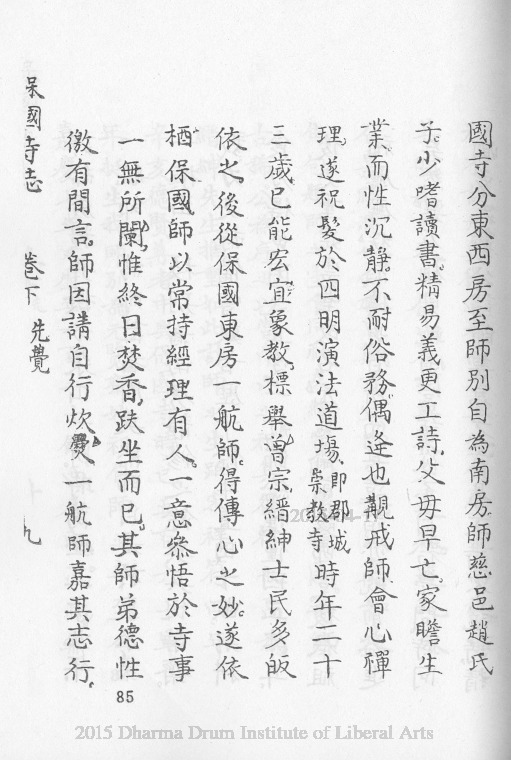 國寺分東西房至師別自為南房師慈邑趙氏
子少嗜讀書精易義更工詩父毋早亡家瞻生
業而性沉靜不耐俗務偶逄也覯戒師會心禪
理遂祝髮於四明演法道塲即郡城崇教寺時年二十
三歲已能宏宣象教標舉曾宗縉紳士民多皈
依之後從保國東房一航師得傳心之妙遂依
栖保國師以常持經理有人一意叅悟於寺事
一無所闌惟終日焚香趺坐而已其師弟德性
徼有間言師因請自行炊爨一航師嘉其志行
保國寺志 卷下 先覺 九
85
2015 Dharma Drum Institute of Liberal Arts